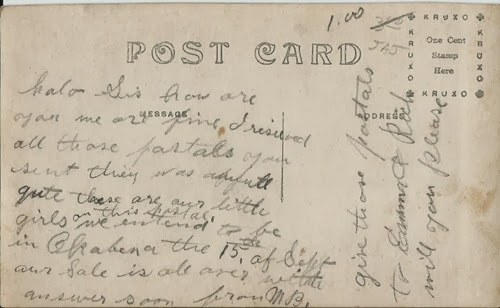 1.00
POST CARD
KRUXO
KRUXO
KRUXO
KRUXO
One Cent
Stamp
Here
MESSAGE
ADDRESS
halo Sis how are
you we are fine I resieved
all those postals you
sent they was awfull
qute these are our little
girls on this postal
we entend to be
in Okabena the 15th of Sept
our Sale is all over with
answer soon from MB.
give those postals
to Emma &
will you please